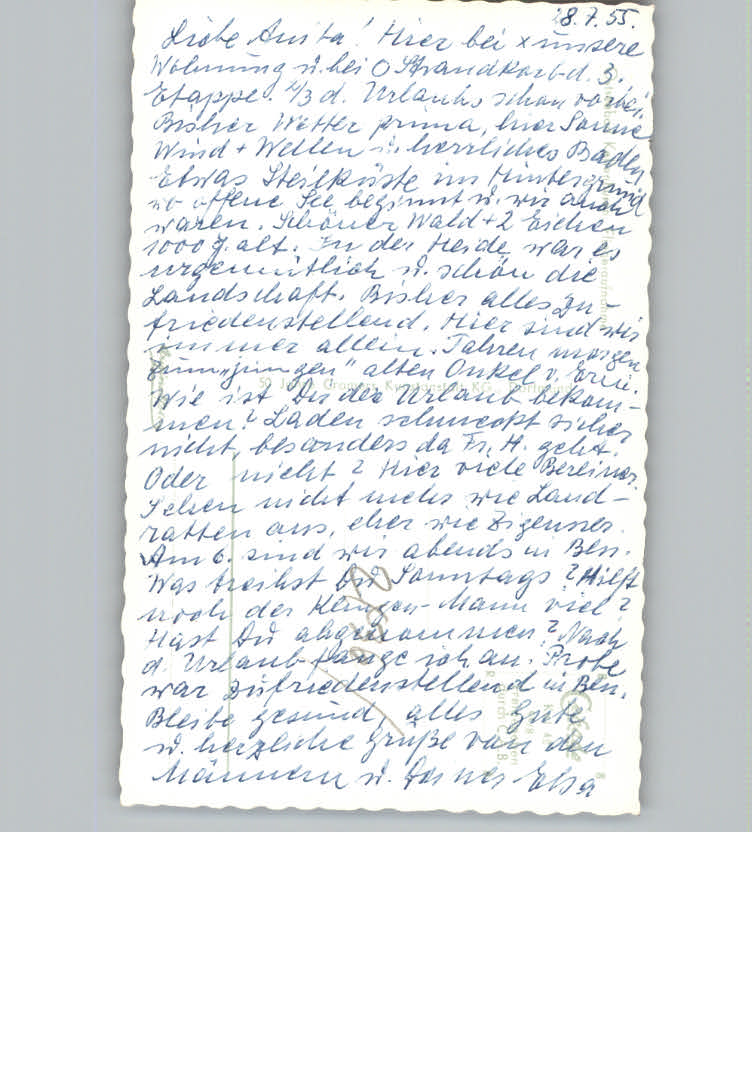 28.7.55.
Liebe Anita! Hier bei x unsere
Wohnung u. bei O Strandkorb d. 3.
Etappe. 2/3 d. Urlaubs schon vorbei.
Bisher Wetter prima, hier Sonne
Wind + Wellen u. herrliches Baden
Etwas Steilküste im Hintergrund
wo offene See beginnt u. wir auch
waren. Schöner Wald + 2 Eichen
1000 J. alt. In der Heide war es
urgemütlich u. schön die
Landschaft. Bisher alles zu-
friedenstellend. Hier sind wir
immer allein. Fahren morgen
zum "jungen" alten Onkel v.
Wie ist Dir der Urlaub bekom-
men? Laden schmeckt sicher
nicht, besonders da Frl. H. geht.
Oder nicht? Hier viele Berliner.
Sehen nicht mehr wie Land-
ratten aus, eher wie Zigeuner.
Am 6. sind wir abends in Ben.
Was treibst Du Sonntags? Hilft
noch der Mann viel?
Hast Du abgenommen? Nach
d. Urlaub fange ich an. Probe
war zufriedenstellend in Ben.
Bleibe gesund, alles Gute
u. herzliche Grüße von den
Männern u. Deiner Elsa
50 Jahre Cramers Kunstanstalt KG., Dortmund